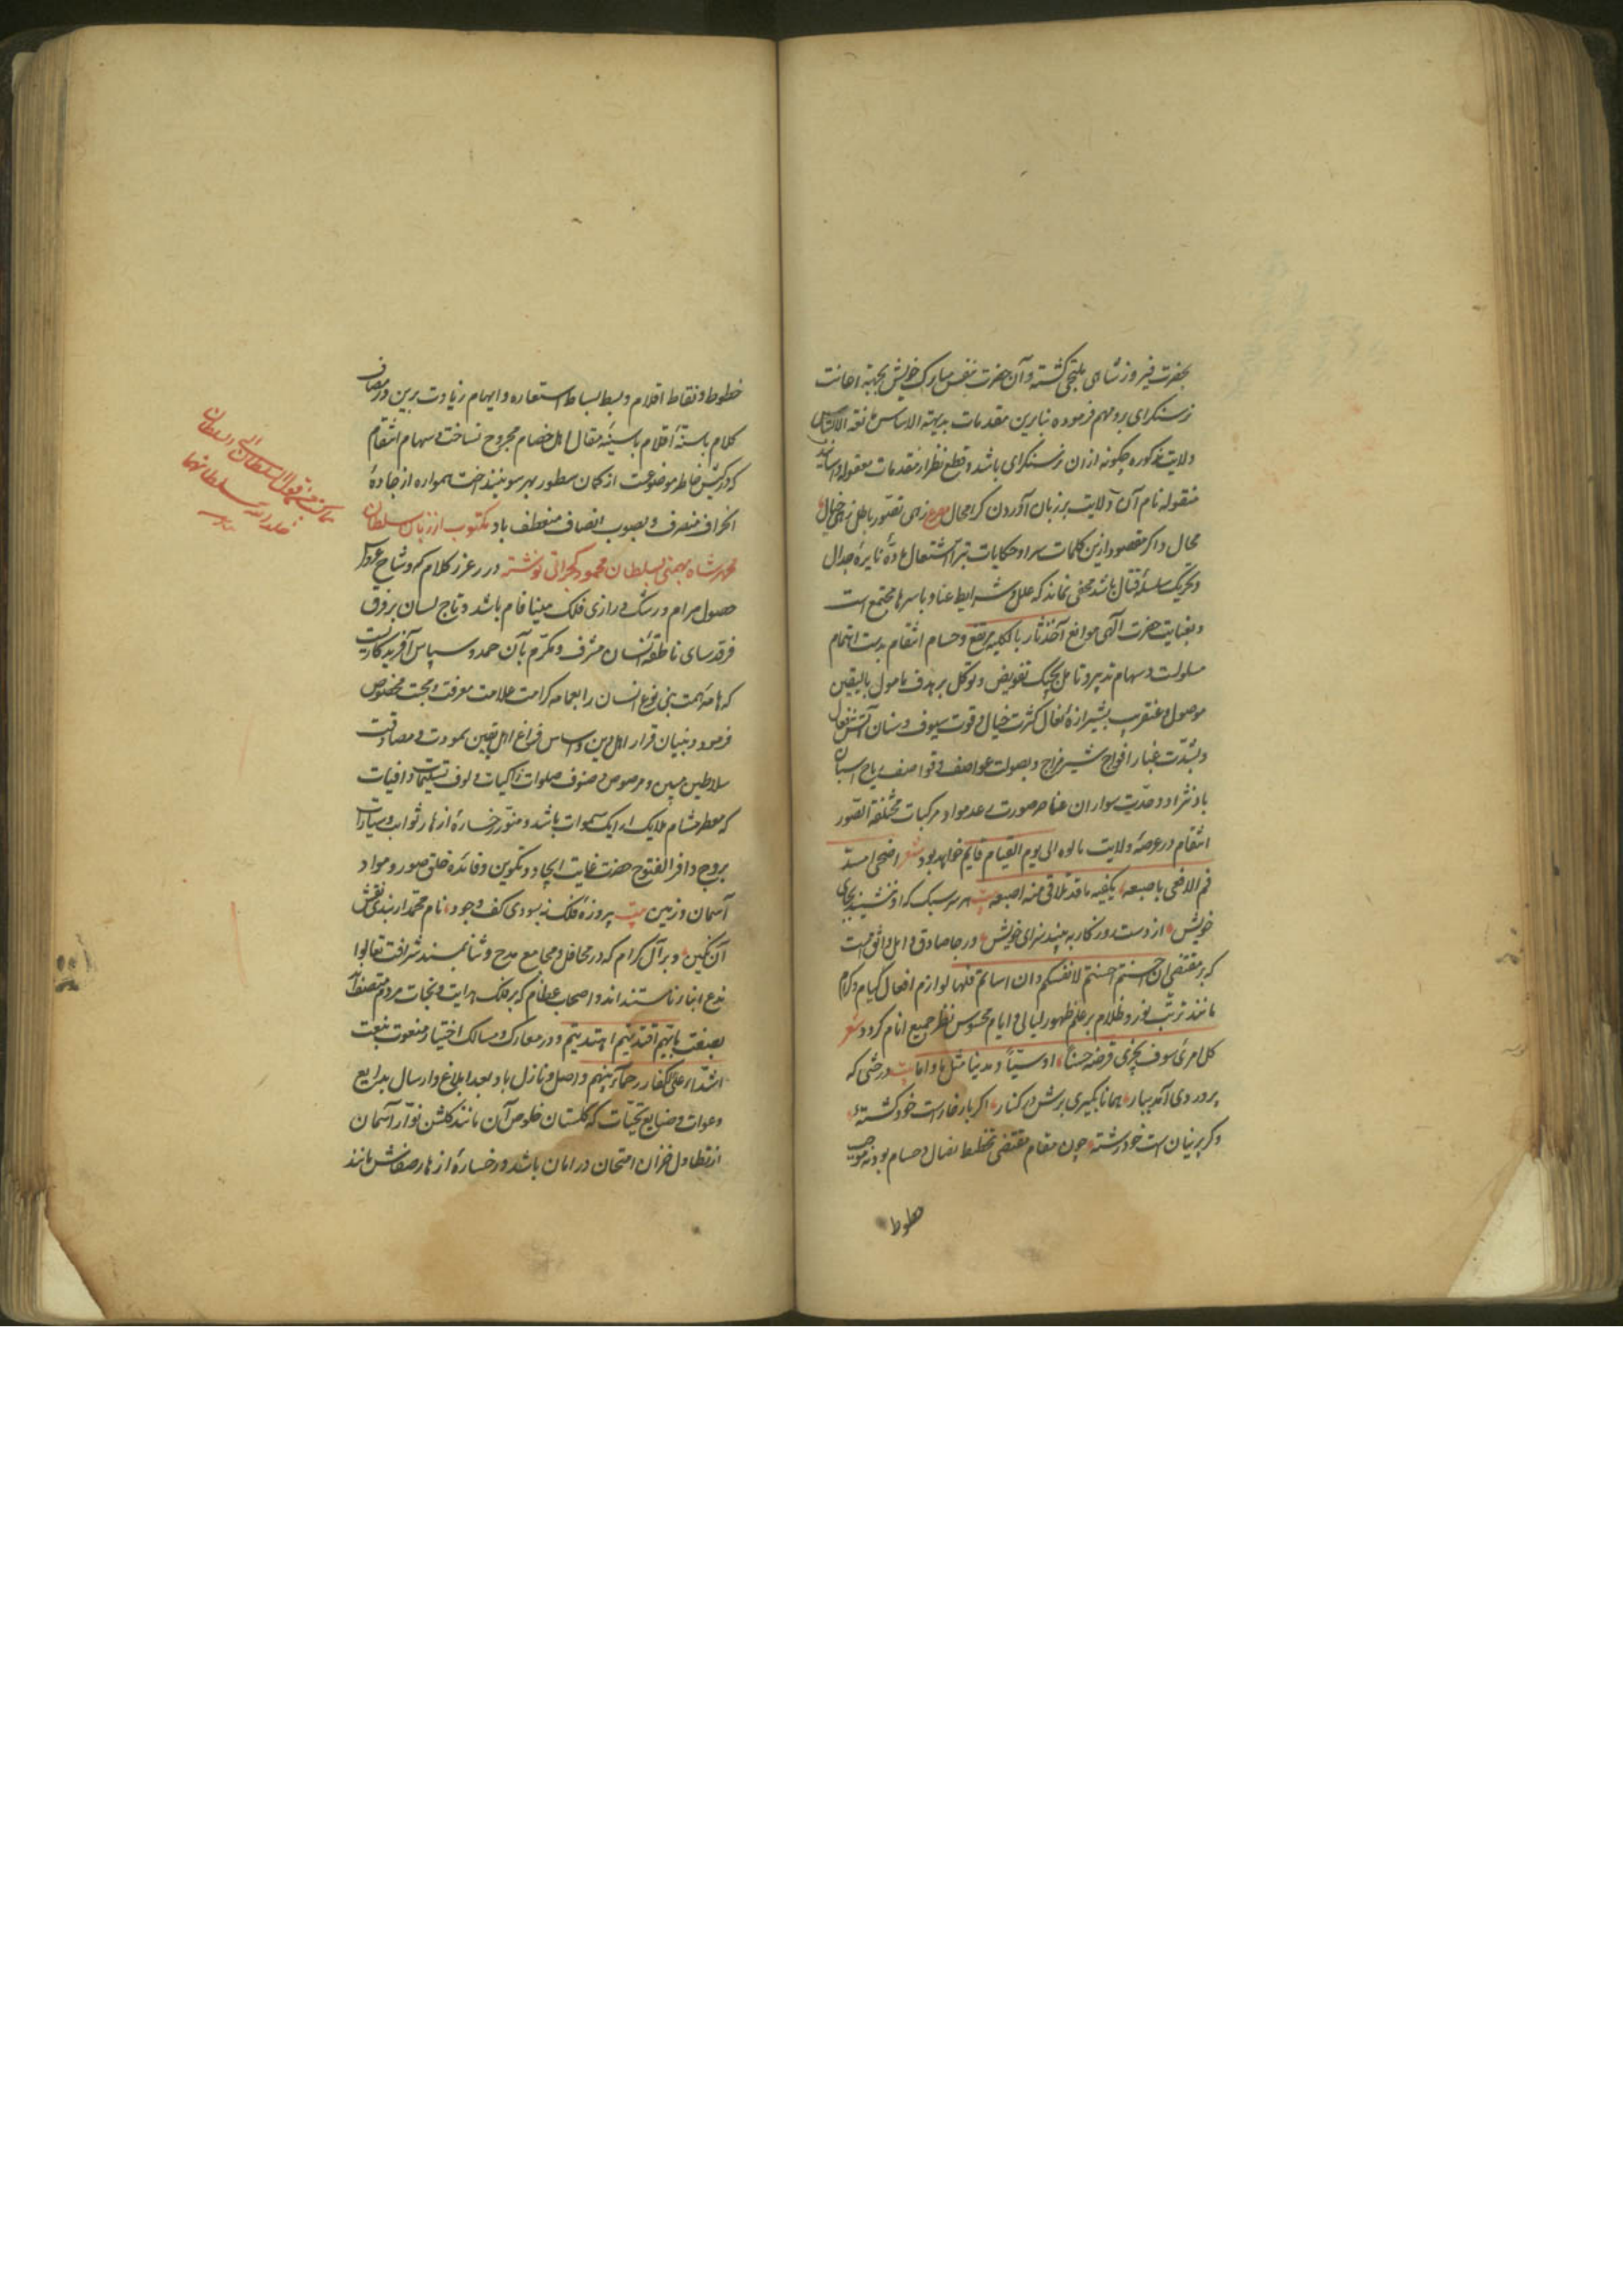 بحضرت فیروزشاهی ملتجی گشته و آن حضرت بنفس مبارک خویش بجهة اهانت
نرسنکرای بروم فرموده بنابرین مقدمات بدیهة الاساس
ولایت مذکوره چکونه ازان نرسنکرای باشد و قطع نظر از مقدمات معقوله و
منقوله نام آن ولایت بر زبان آوردن کرا مجال مصرع زهی تصور باطل زهی خیال
محال و اکر مقصود ازین کلمات سراو حکایات تبرا اشتعال نایرهٔ جدال
و تحریک سلسلهٔ قتال باشد مخفی نماند که علل و شرایط عناد باسرها مجتمع است
و بعنایت حضرت آلهی موانع اخذ ثار بالکلیه مرتفع و حسام انتقام بدست اهتمام
مسلولست و سهام تدبیر و تامل بچنک تفویض و توکل بر هدف مامول بالیقین
موصول و عنقریب
و بشدت غبار افواج شیر مزاج و بصولت عواصف و قواصف ریاح اسبان
باد نژاد و حدت سواران عناصر صورت عدم مواد مرکبات مختلفة الصور
انتقام در عرصهٔ ولایت مالوه الی یوم القیام قایم خواهد بود شعر اضحی یسد
فم الافعی باصبعه یکفیه ما قد تلاقی منه اصبعه بیت هر سر سبک که او ننشیند بجای
خویش از دست روزکار به بیند سزای خویش و رجا صادق و امل واثق است
که بر مقتضی ان احسنتم احسنتم لانفسکم و ان اساتم فلها لوازم افعال لیام و کرام
مانند ترتب نور و ظلام بر علم ظهور لیالی و ایام محسوس نظر جمیع انام کردد شعر
کل امرئ سوف یجزی قرضه حسنا او سیئا و مدینا مثل ما دانا بیت درختی که
پروردی آمد ببار هماناکه بکیری برش در کنار اکر بار خارست خود کشتهٔ
وکر پرنیان است خود رشتهٔ چون مقام مقتضی تخطیط نصال و حسام بود نه موجب
خطوط
خطوط و نقاط اقلام و بسط بساط استعاره و ایهام زیادت برین در مصاف
کلام باسنهٔ اقلام با سینهٔ مقال اهل خصام مجروح نساخت و سهام انتقام
که در کیش خاطر موضوعست از کمان سطور بهر سو نینداخت همواره از جادهٔ
انحراف منصرف و بصوب انصاف منعطف باد مکتوب از زبان سلطان
محمد شاه بهمنی بسلطان محمود کجراتی نوشته درر غرر کلام که وشاح عروس
حصول مرام و رشک دراری فلک مینا فام باشد و تاج لسان بر فرق
فرقدسای ناطقهٔ انسان مشرف و مکرم بآن حمد و سپاس آفریدکاریست
که هامهٔ همت بنی نوع انسان را بعمامهٔ کرامت علامت معرفت و محبت مخصوص
فرمود و بنیان قرار اهل دین و اساس فراغ اهل یقین بمودت و مصادقت
سلاطین مبین و مرصوص و صنوف صلوات زاکیات و الوف تسلیمات وافیات
که معطر مشام ملایک ارایک سموات باشد و منور رخسارهٔ ازهار ثوابت و سیارات
بروح وافر الفتوح حضرت غایت ایجاد و تکوین و فائدهٔ خلق صور و مواد
آسمان و زمین بیت پیروزهٔ فلک نه بسودی کف وجود نام محمد ار نبدی نقش
آن نکین و بر آل کرام که در محافل و مجامع مدح و ثنا بمسند شرافت تعالوا
ندع ابنائنا مستندند و اصحاب عظام که بر فلک هدایت و نجات مردم متصف
بصفت بایهم اقتدیتم اهتدیتم و در معارک و مسالک اختیار منعوت بنعت
اشداء علی الکفار رحماء بینهم واصل و نازل باد بعد ابلاغ و ارسال بدایع
دعوات و ضایع تحیات که کلستان خلوص آن مانند کلشن نوار آسمان
از تطاول خزان امتحان در امان باشد و رخسارهٔ ازهار صفاش مانند